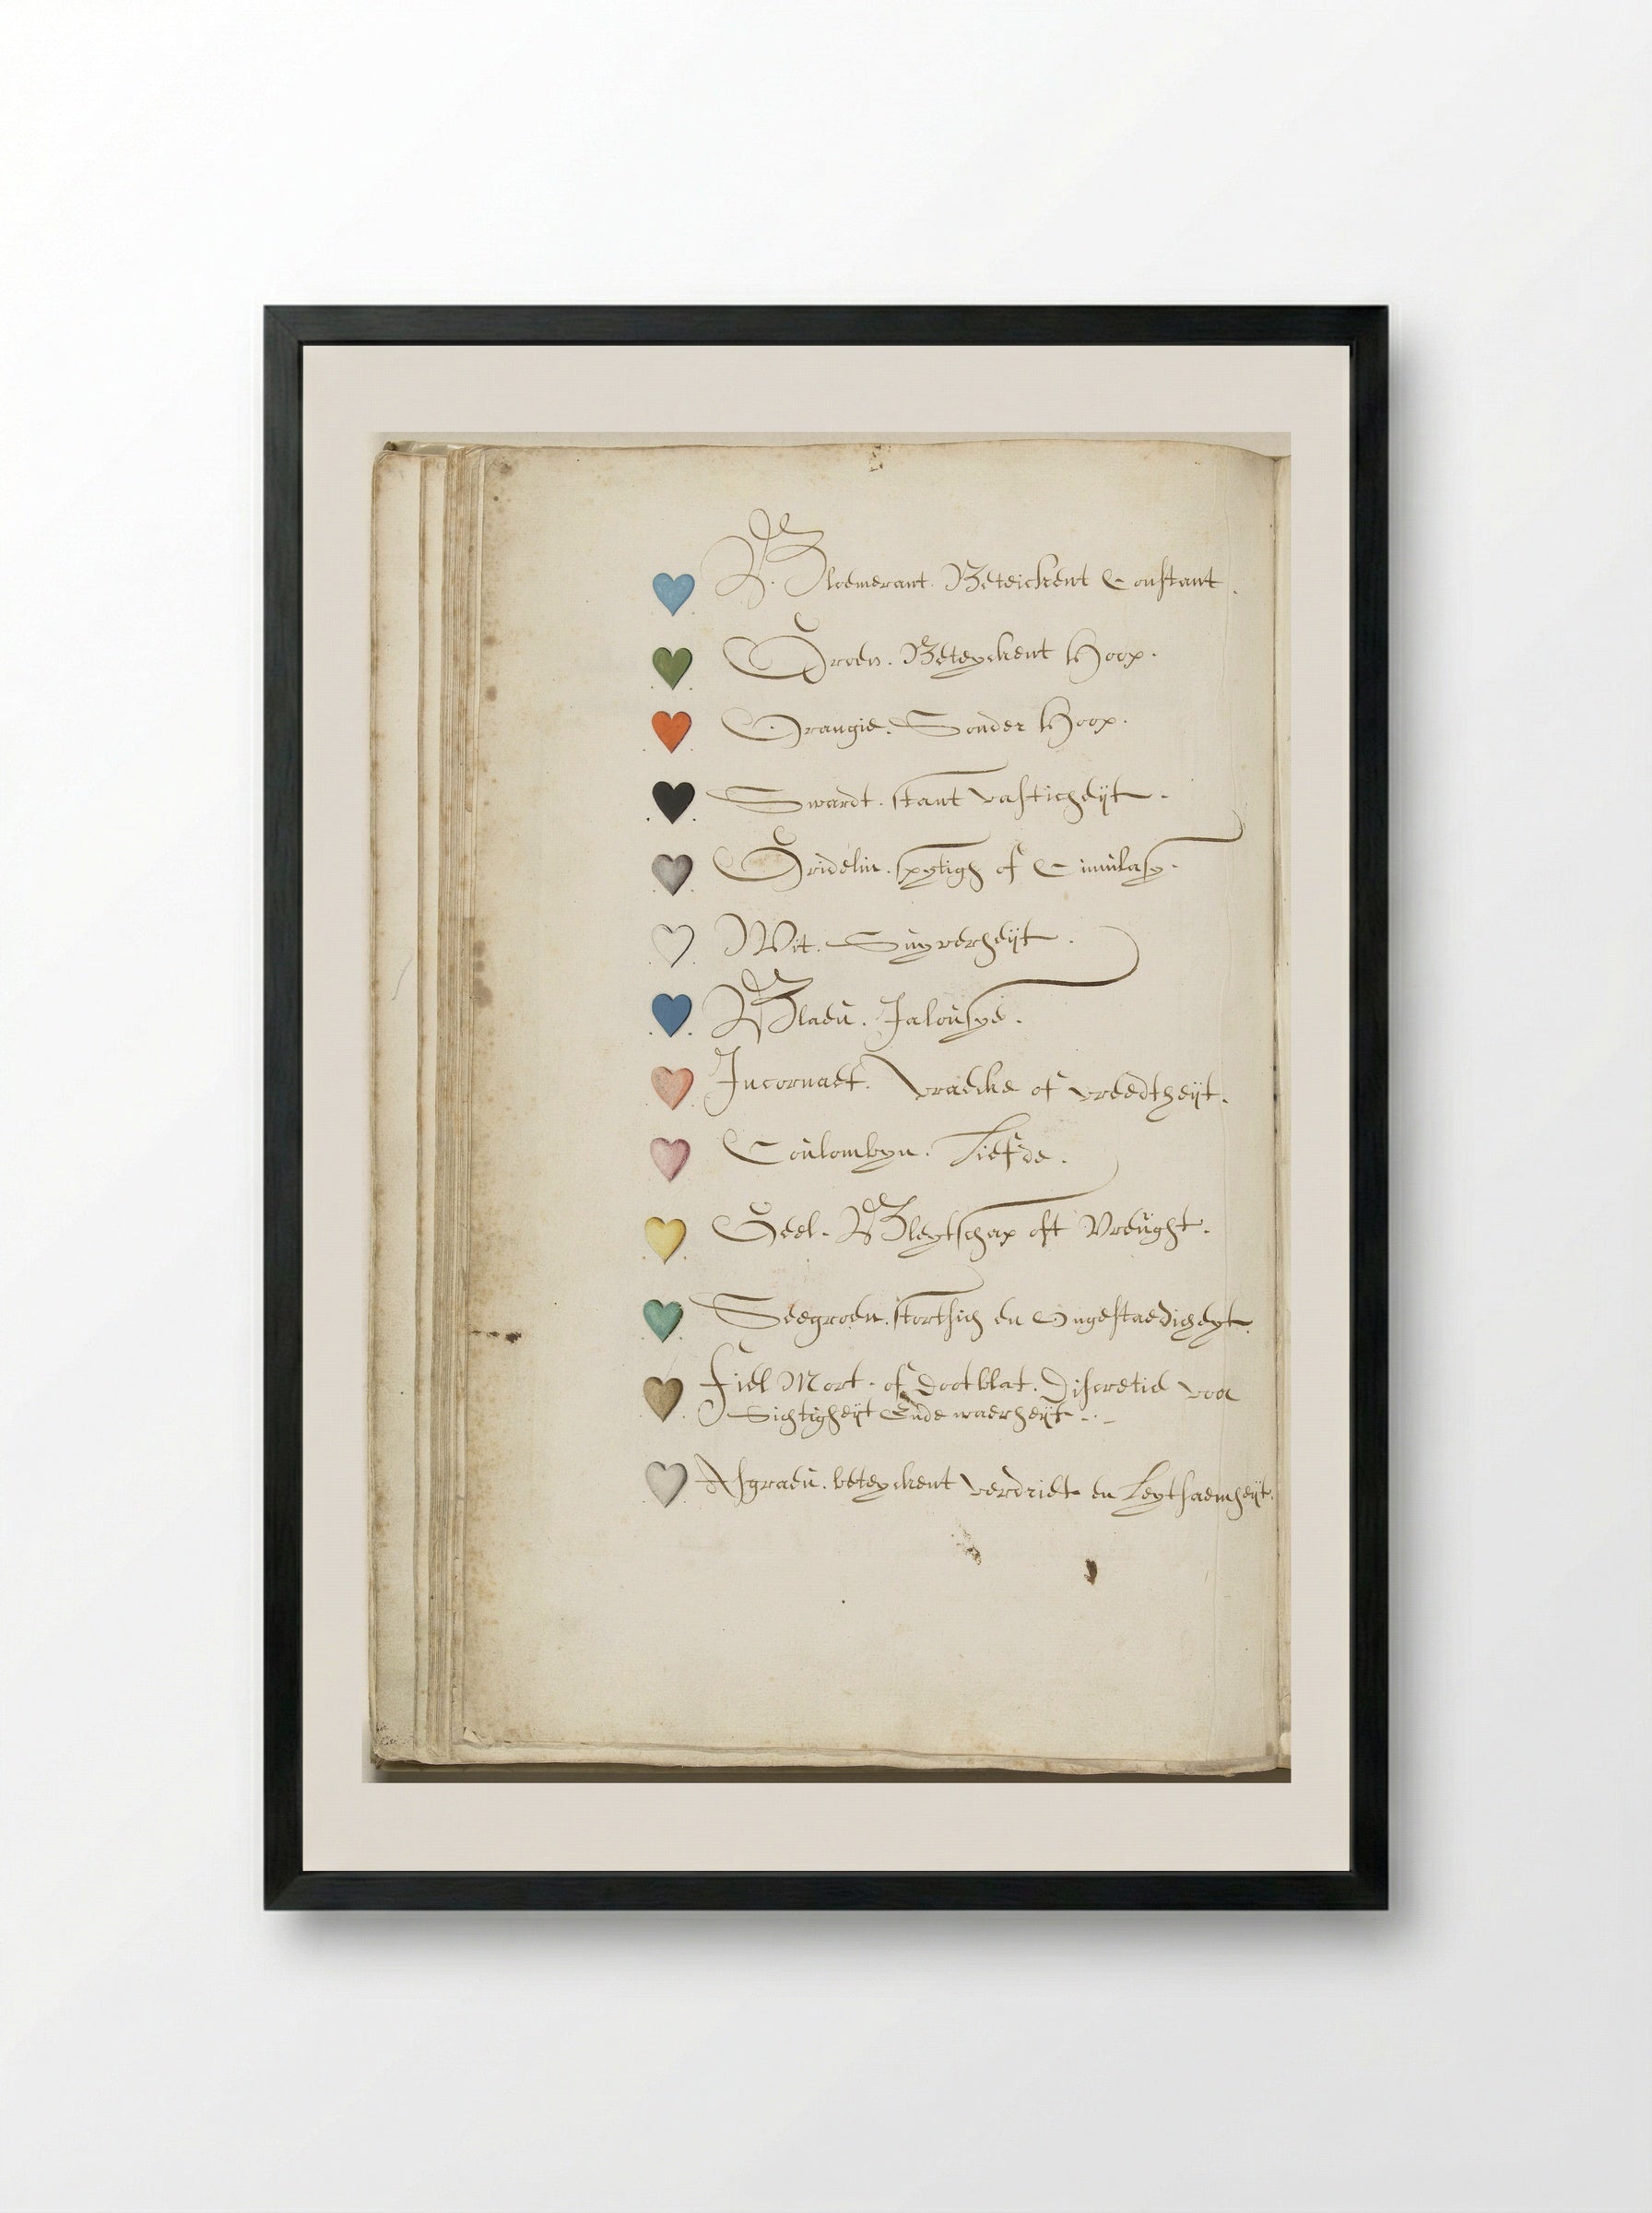 Bloemerant. Beteickent Constant.
Groen. Beteyckent Hoop.
Orangie. Sonder Hoop.
Swardt. stantvasticheÿt.
Gridelin. spytigh of
Wit. Suyverheÿt.
Blaeu. Jalousye.
Incornaet. Vraecke of vreedtheÿt.
Coulombyn. Liefde.
Geel. Bleytschap oft Vreught.
Seegroen. stortsich en Ongestaedicheyt.
Fiel Mort. of dootblat. Discretie voor
Sichtigheÿt Ende waerheÿt.
Asgraeu. beteyckent verdriet en Leytsaemheÿt.